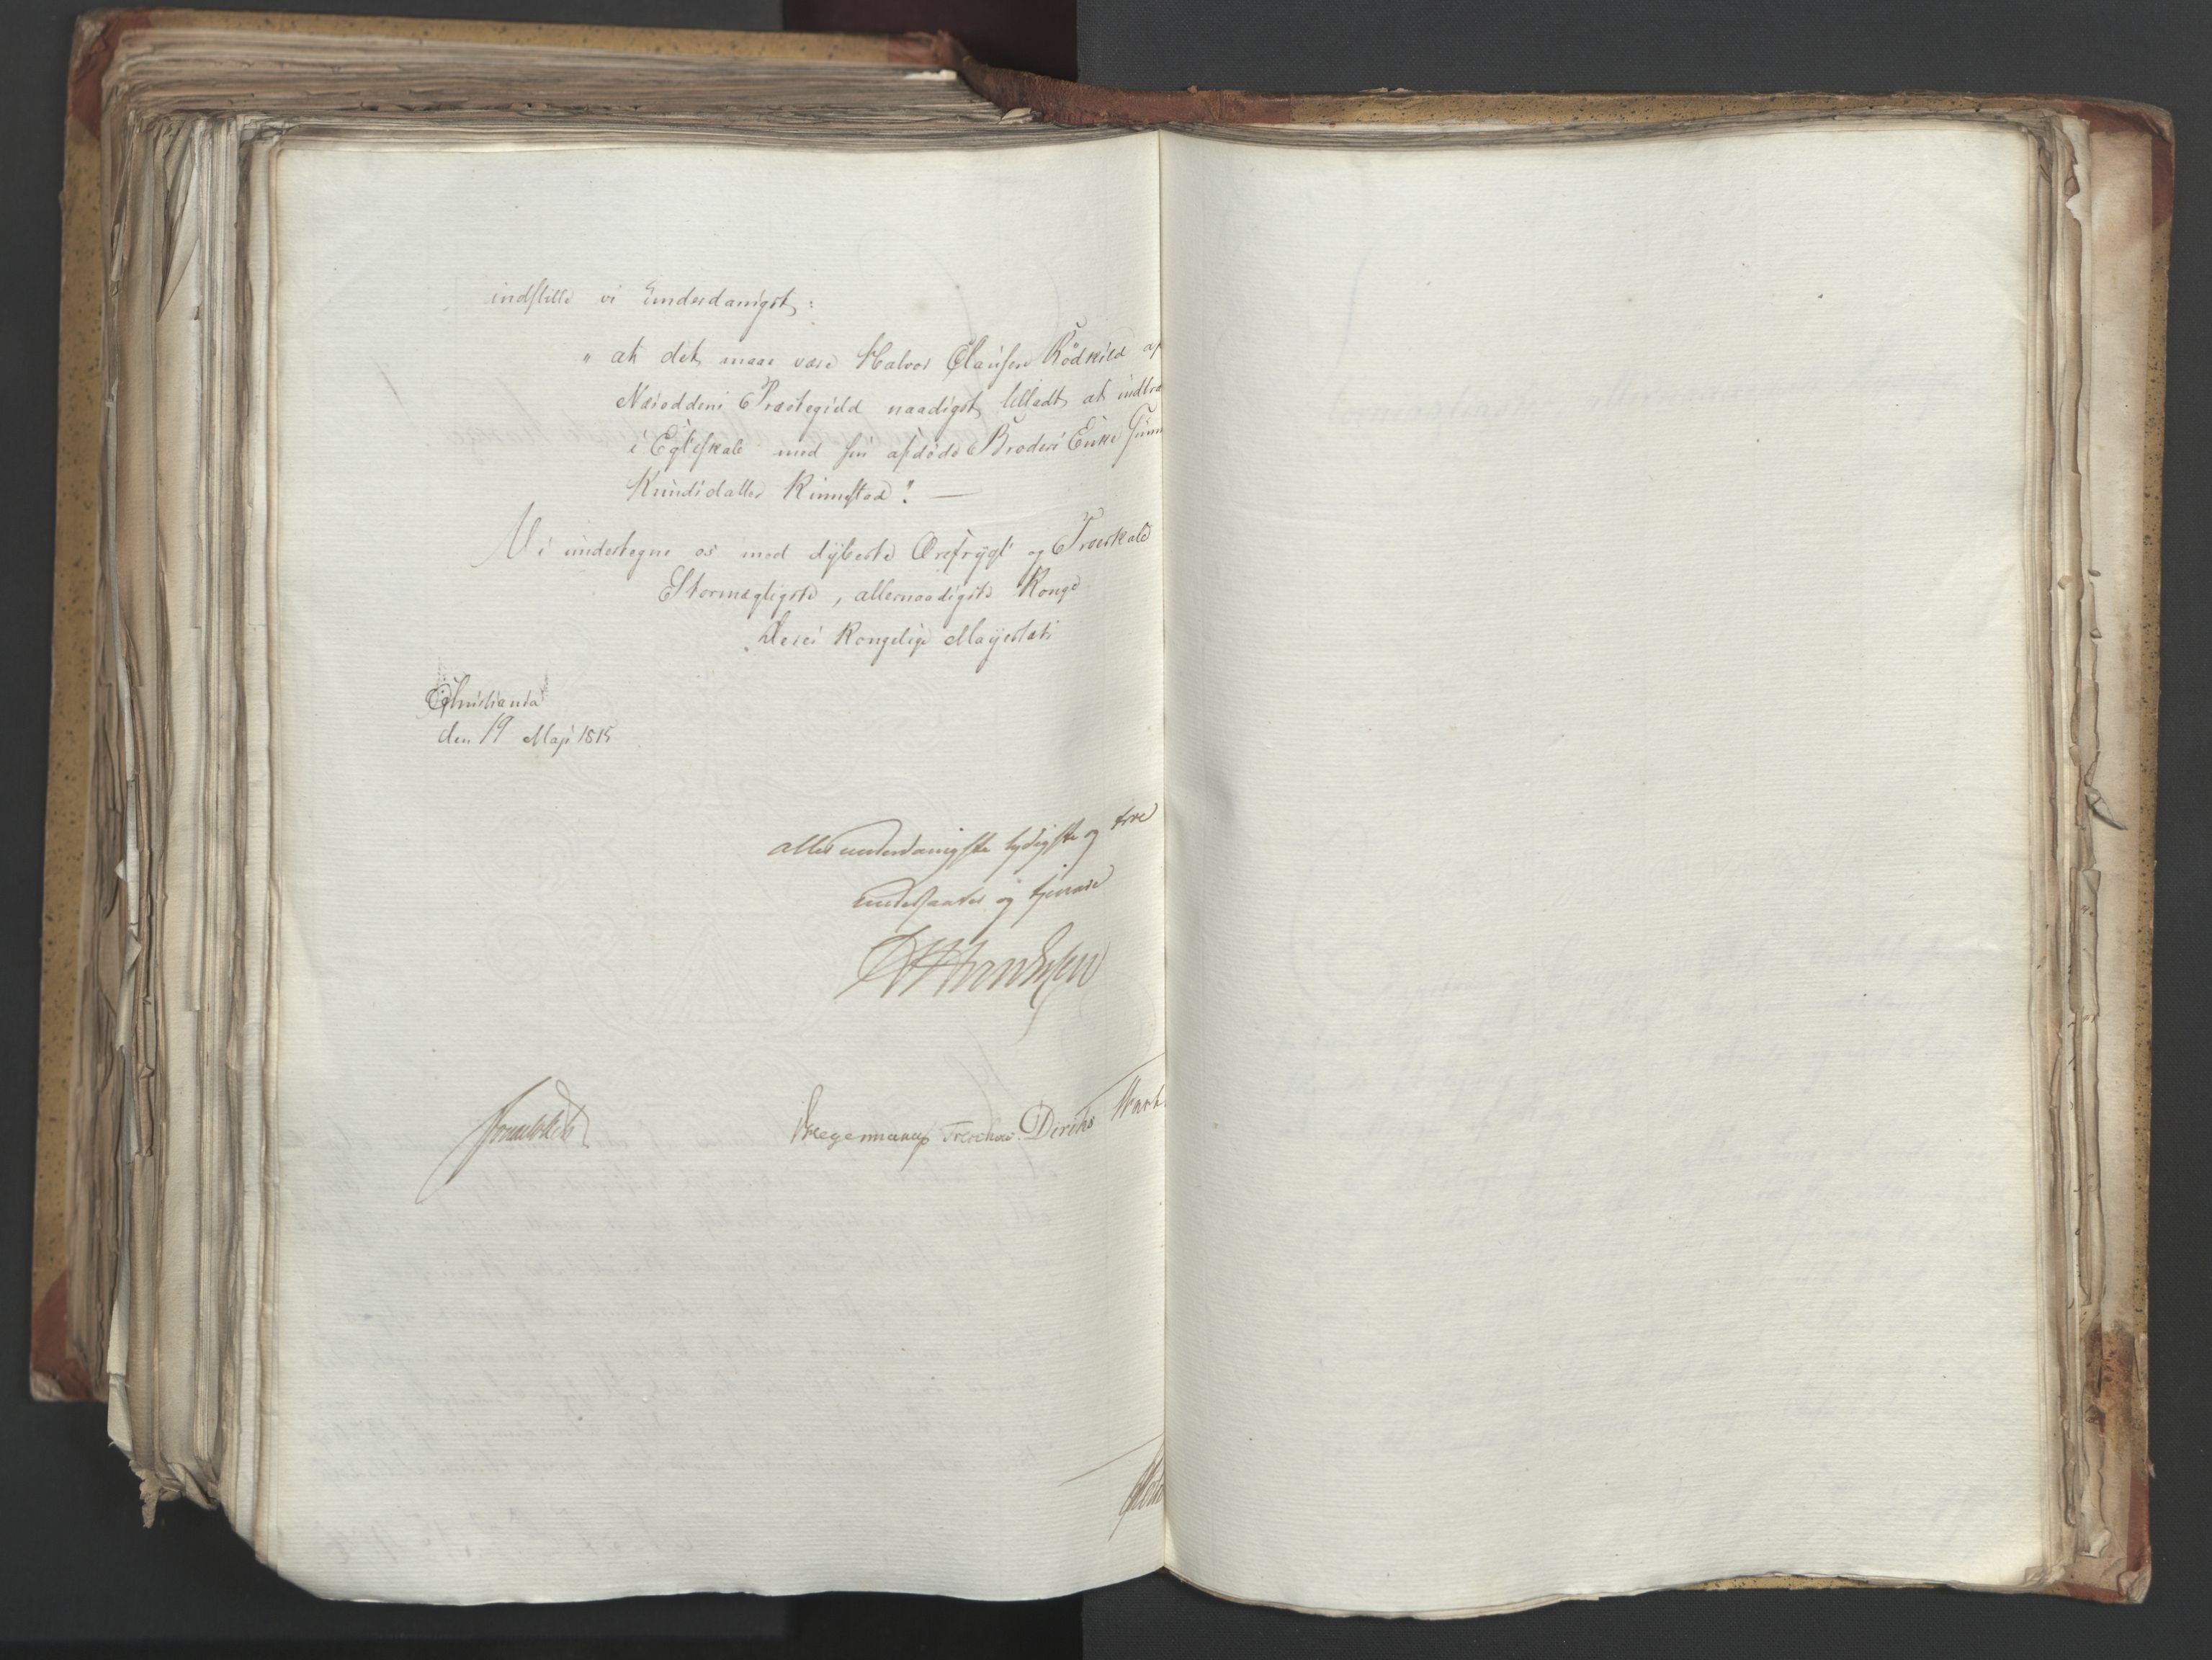 indstille vi underdanigst:
" at det maae være Halvor Clausen Rödkild af
Næsoddens Præstegield naadigst tilladt at indtræ
i Egteskab med sin afdöde Broders Enke Gunn
Knudsdatter Rinnstad". —
Vi undertegne os med dÿbeste Ærefrÿgt og Troeskab
Stormægtigste, allernaadigste Konge
Deres Kongelige Mayestæts
Christiania
den 19 Maji 1815
allerunderdanigste lydigste og troe
undersaatter og tjenere
Hegermann Treschow Diriks